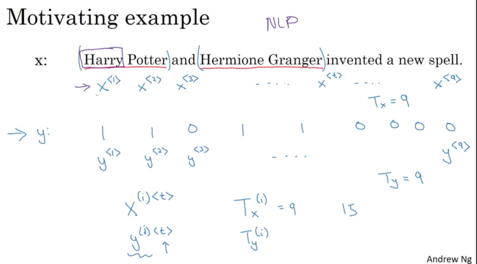 Motivating example
NLP
x: Harry Potter and Hermione Granger invented a new spell.
→ x<1> x<2> x<3> ..... x<t> .... x<9>
Tx = 9
→ y: 1 1 0 1 1 0 0 0 0
y<1> y<2> y<3> .... y<9>
Ty = 9
X(i)<t> Tx(i) = 9 15
y(i)<t> Ty(i)
Andrew Ng